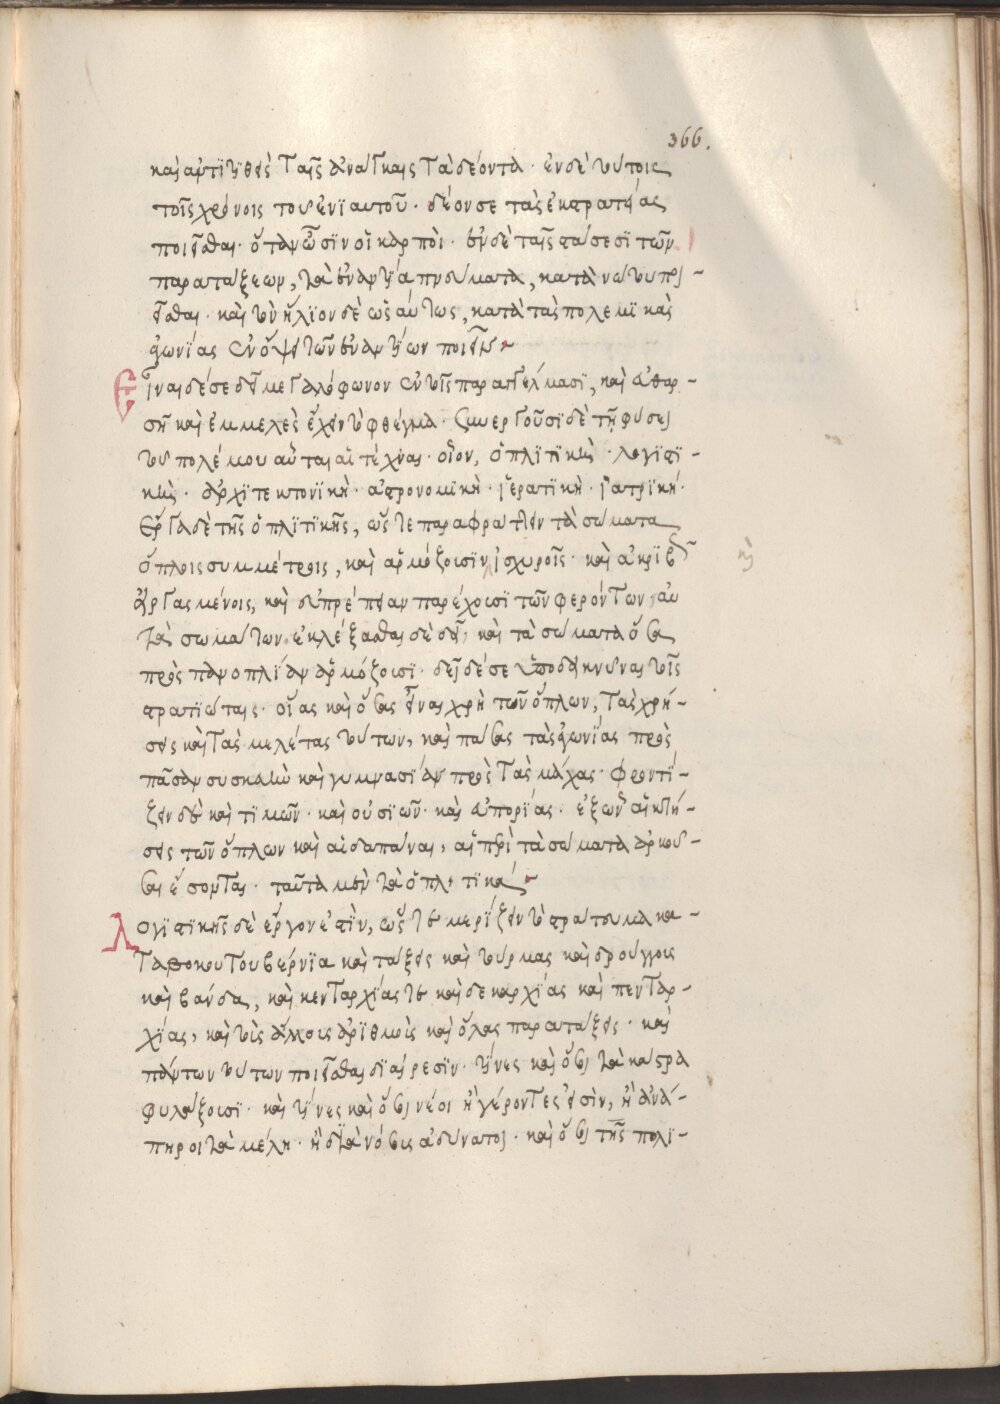 366.
καὶ ἀντιτιθεὶς ταῖς ἀνάγκαις τὰ δέοντα · ἐν δὲ τούτοις
τοῖς χρόνοις τοῦ ἐνϊαυτοῦ · δέον σε τὰς ἐκστρατείας
ποιεῖσθαι · ὅταν ὦσϊν οἱ καρποὶ · ἐν δὲ ταῖς στάσεσϊ τῶν
παρατάξεων, τὰ ἐναντία πνεύματα, κατὰ νώτου ποι-
εῖσθαι · καὶ τὸν ἥλϊον δὲ ὡσαύτως, κατὰ τὰς πολεμϊκὰς
ἀγωνίας ἐν ὄψει τῶν ἐναντίων ποιεῖν
Εἶναι δέ σε δεῖ μεγαλόφωνον ἐν τοῖς παραγγέλμασϊ, καὶ εὐθαρ-
σῆ καὶ ἐμμελὲς ἔχειν τὸ φθέγμα · συνεργοῦσϊ δὲ τῇ φύσει
τοῦ πολέμου αὗται αἱ τέχναι · οἷον, ὁπλϊτϊκὴ · λογϊστϊ-
κὴ · ἀρχϊτεκτονϊκὴ · ἀστρονομϊκὴ · ἱερατϊκὴ · ἰατρϊκή ·
Ἔργα δὲ τῆς ὁπλϊτϊκῆς, ὥστε παραφράττειν τὰ σώματα
ὅπλοις συμμέτροις, καὶ ἁρμόζουσϊν ἰσχυροῖς · καὶ ἀκρϊβῶς
εἰργασμένοις, καὶ εὐπρέπειαν παρέχουσϊ τῶν φερόντων αὐ
τὰ σωμάτων · ἐκλέξασθαι δὲ δεῖ, καὶ τὰ σώματα ὅσα
πρὸς πανοπλίαν ἁρμόζουσϊ · δεῖ δέ σε ὑποδεικνύναι τοῖς
στρατϊώταις · οἵας καὶ ὅσας εἶναι χρὴ τῶν ὅπλων, τὰς χρή-
σεις καὶ τὰς μελέτας τούτων, καὶ πάσας τὰς ἀγωνίας πρὸς
πᾶσαν συσκευὴν καὶ γυμνασίαν πρὸς τὰς μάχας · φροντί-
ζειν δὲ καὶ τϊμῶν · καὶ οὐσϊῶν · καὶ εὐπορίας · ἐξ ὧν αἱ κτή-
σεις τῶν ὅπλων καὶ αἱ δαπάναι, αἱ περὶ τὰ σώματα ἀρκοῦ-
σαι ἔσονται · ταῦτα μὲν τὰ ὁπλϊτϊκά
Λογϊστϊκῆς δὲ ἔργον ἐστὶν, ὥστε μερίζειν τὸ στράτευμα κα-
τὰ κουβέρνϊα καὶ τάξεις καὶ τούρμας καὶ δρούγγους
καὶ βάνδα, καὶ κενταρχίας τε καὶ δεκαρχίας καὶ πενταρ-
χίας, καὶ τοῖς ἄλλοις ἀρϊθμοῖς καὶ ὅλας παρατάξεις · καὶ
πάντων τούτων ποιεῖσθαι δϊαίρεσϊν · τίνες καὶ ὅσοι τὰ κάστρα
φυλάξουσϊ · καὶ τίνες καὶ ὅσοι νέοι ἢ γέροντες εἰσὶν, ἢ ἀνά-
πηροι τὰ μέλη · ἢ δϊὰ νόσους ἀδύνατοι · καὶ ὅσοι τῆς πολϊ-